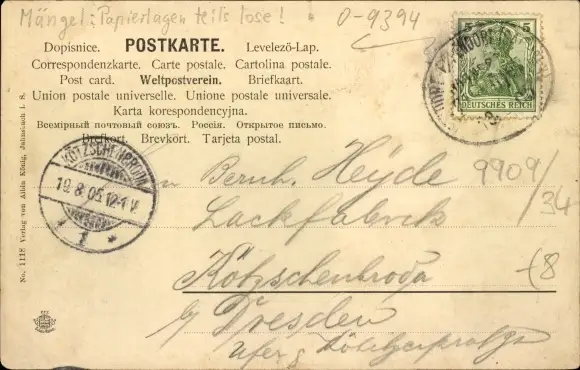 Mängel: Papierlagen teils lose!
0-9394
Dopisnice. POSTKARTE. Levelező-Lap.
Correspondenzkarte. Carte postale. Cartolina postale.
Post card. Weltpostverein. Briefkaart.
Union postale universelle. Unione postale universale.
Karta korespondencyjna.
Всемірный почтовый союзъ. Россія. Открытое письмо.
Brefkort. Brevkort. Tarjeta postal.
5 5
DEUTSCHES REICH
KÖTZSCHENBRODA
19 8 05 12-1 N
* 1 *
Bernh. Heyde
Lackfabrik
Kötzschenbroda
Dresden
9909/34
8
No. 1118 Verlag von